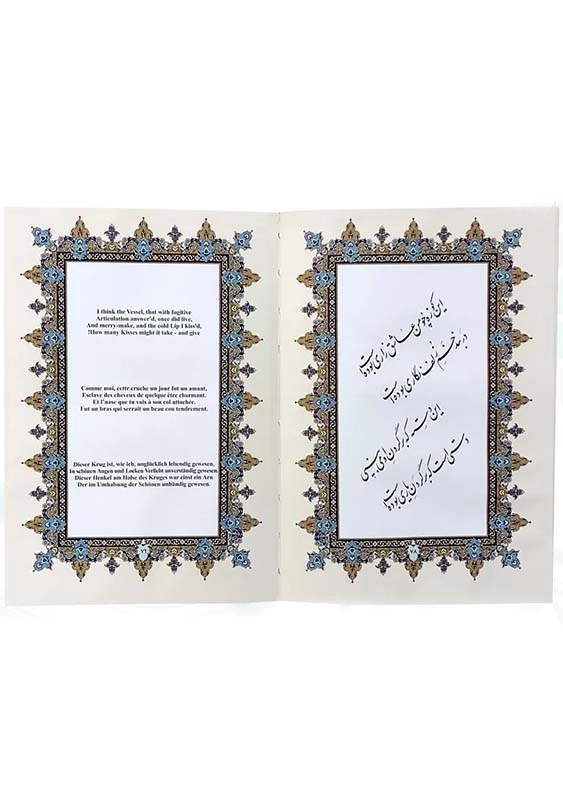 I think the Vessel, that with fugitive
Articulation answer'd, once did live,
And merry-make, and the cold Lip I kiss'd,
!How many Kisses might it take - and give
Comme moi, cettr cruche un jour fot un amant,
Esclave des cheveux de quelque être charmant.
Et l'nose que tu vois à son col attochée.
Fut un bras qui serrait un beau cou tendrement.
Dieser Krug ist, wie ich, unglücklich lebendig gewesen,
In schönen Augen und Locken Verliebt unverständig gewesen
Dieser Henkel am Halse des Kruges war einst ein Arn
Der im Umhabung der Schönen unhändig gewesen.
این کوزه چو من عاشق زاری بوده است
در بند خم زلف نگاری بوده است
این دسته که بر گردن او می بینی
دستی است که بر گردن یاری بوده است